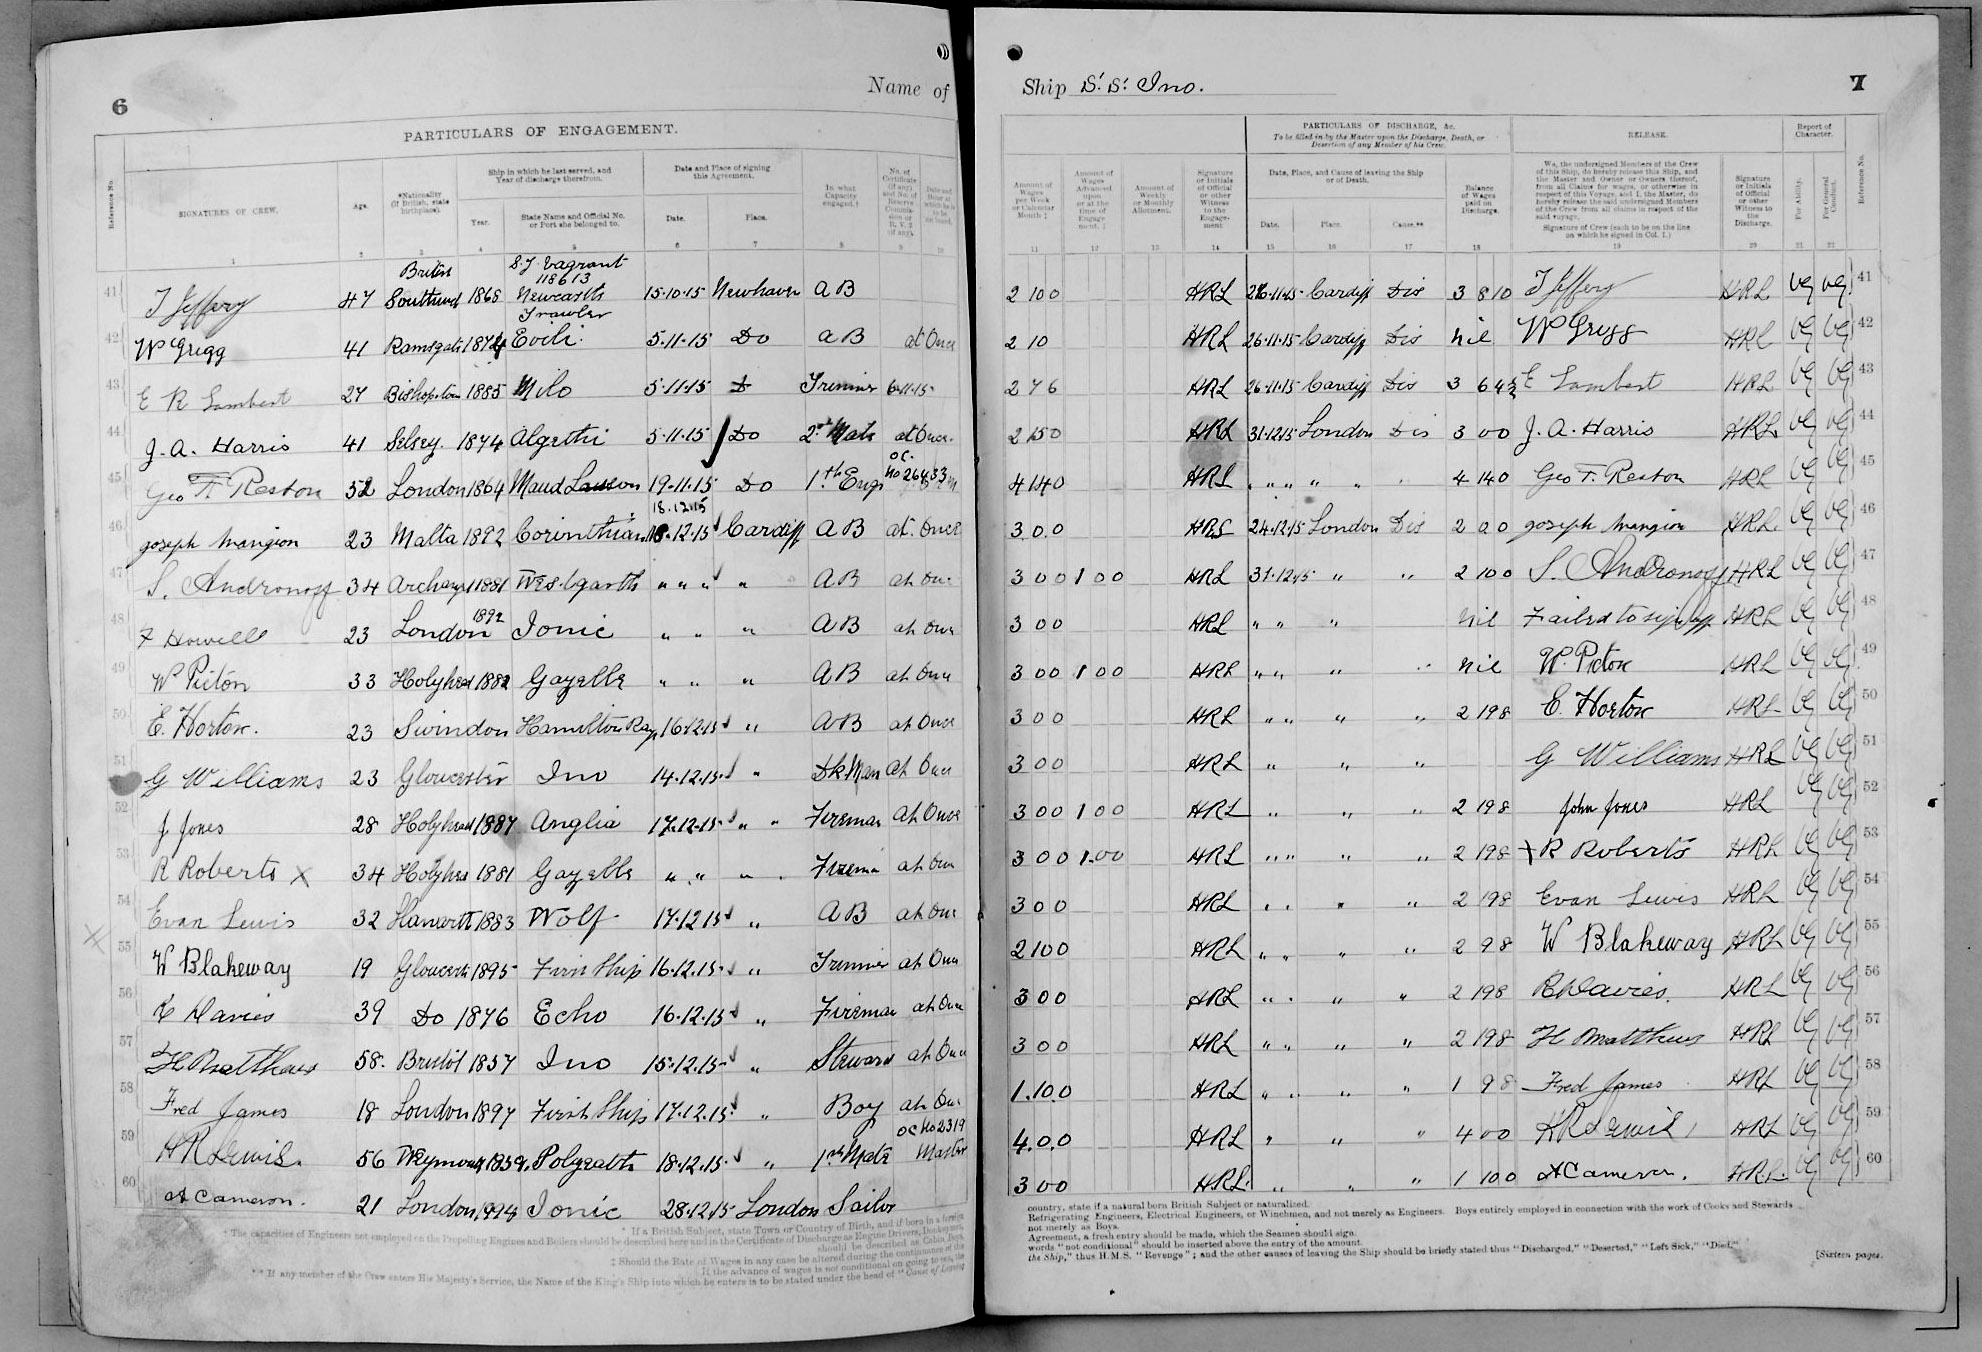 6
Name of
PARTICULARS OF ENGAGEMENT.
Reference No.
SIGNATURES OF CREW.
Age.
*Nationality (If British, state birthplace).
Ship in which he last served, and Year of discharge therefrom.
Year.
State Name and Official No. or Port she belonged to.
Date and Place of signing this Agreement.
Date.
Place.
In what Capacity engaged.†
1 2 3 4 5 6 7 8 9 10
41 T Jeffery 47 British Southend 1868 S.T. Vagrant 118613 Newcastle Trawler 15.10.15 Newhaven AB
42 W Grigg 41 Ramsgate 1874 Evili 5.11.15 Do AB at Once
43 E R Lambert 27 Bishopstone 1885 Milo 5.11.15 D Trimmer 6.11.15
44 J. A. Harris 41 Selsey. 1874 Algethi 5.11.15 Do 2nd Mate at Once.
45 Geo F. Reston 52 London 1864 Maud Lawson 19.11.15 Do 1st Engr OC. No 26833
46 Joseph Mangion 23 Malta 1892 Corinthian 18.12.15 18.12.15 Cardiff AB at Once
47 S. Andronoff 34 Archangel 1881 Westgarth " " " " AB at Once
48 F Howell 23 London 1892 Ionic " " " AB at Once
49 W Picton 33 Holyhead 1882 Gazelle " " " AB at Once
50 E. Horton. 23 Swindon Hamilton Ray 16.12.15 " AB at Once
51 G Williams 23 Gloucester Ino 14.12.15 " Dk Man at Once
52 J Jones 28 Holyhead 1887 Anglia 17.12.15 " " Fireman at Once
53 R Roberts X 34 Holyhead 1881 Gazelle " " " Fireman at Once
54 Evan Lewis 32 1883 Wolf 17.12.15 " AB at Once
55 W Blakeway 19 Gloucester 1895 First Ship 16.12.15 " Trimmer at Once
56 R Davies 39 Do 1876 Echo 16.12.15 " Fireman at Once
57 H Matthews 58. Bristol 1857 Ino 15.12.15 " Steward at Once
58 Fred James 18 London 1897 First Ship 17.12.15 " Boy at Once
59 H R Lewis. 56 Weymouth 1859. 18.12.15 " 1st Mate OC No 2319 Master
60 A Cameron. 21 London 1894 Ionic 28.12.15 London Sailor
* If a British Subject, state Town or Country of Birth, and if born in a foreign
† The capacities of Engineers not employed on the Propelling Engines and Boilers should be described here and in the Certificate of Discharge as Engine Drivers, Donkeymen,
should be described as Cabin Boys,
‡ Should the Rate of Wages in any case be altered during the continuance of the
If the advance of wages is not conditional on going to sea, the
** If any member of the Crew enters His Majesty's Service, the Name of the King's Ship into which he enters is to be stated under the head of "Cause of Leaving
Ship S.S. Ino.
7
PARTICULARS OF DISCHARGE, &c.
To be filled in by the Master upon the Discharge, Death, or Desertion of any Member of his Crew.
RELEASE.
Report of Character.
Amount of Wages per Week or Calendar Month ‡
Amount of Wages Advanced upon or at the time of Engagement. ‡
Amount of Weekly or Monthly Allotment.
Signature or Initials of Official or other Witness to the Engagement
Date, Place, and Cause of leaving the Ship or of Death.
Date. Place. Cause.**
Balance of Wages paid on Discharge.
We, the undersigned Members of the Crew of this Ship, do hereby release this Ship, and the Master and Owner or Owners thereof, from all Claims for wages, or otherwise in respect of this Voyage, and I, the Master, do hereby release the said undersigned Members of the Crew from all claims in respect of the said voyage.
Signature of Crew (each to be on the line on which he signed in Col. 1.)
Signature or Initials of Official or other Witness to the Discharge.
For Ability.
For General Conduct.
Reference No.
11 12 13 14 15 16 17 18 19 20 21 22
2 10 0 HRL 26.11.15 Cardiff Dis 3 8 10 T Jeffery HRL VG VG 41
2 10 HRL 26.11.15 Cardiff Dis nil W Grigg HRL VG VG 42
2 7 6 HRL 26.11.15 Cardiff Dis 3 6 4½ E Lambert HRL VG VG 43
2 15 0 HRL 31.12.15 London Dis 3 0 0 J. A. Harris HRL VG VG 44
4 14 0 HRL " " " " " 4 14 0 Geo F. Reston HRL VG VG 45
3 0 0 HRL 24.12.15 London Dis 2 0 0 Joseph Mangion HRL. VG VG 46
3 0 0 1 0 0 HRL 31.12.15 " " 2 10 0 S. Andronoff HRL VG VG 47
3 0 0 HRL " " " nil Failed to sign off HRL VG VG 48
3 0 0 1 0 0 HRL " " " " nil W. Picton HRL VG VG 49
3 0 0 HRL " " " " 2 19 8 E. Horton HRL VG VG 50
3 0 0 HRL " " " G Williams HRL VG VG 51
3 0 0 1 0 0 HRL " " " 2 19 8 John Jones HRL VG VG 52
3 0 0 1.0 0 HRL " " " " 2 19 8 X R Roberts HRL VG VG 53
3 0 0 HRL " " " " 2 19 8 Evan Lewis HRL VG VG 54
2 10 0 HRL " " " " 2 9 8 W Blakeway HRL VG VG 55
3 0 0 HRL " " " " 2 19 8 R Davies. HRL VG VG 56
3 0 0 HRL " " " " 2 19 8 H Matthews HRL VG VG 57
1.10.0 HRL " " " " 1 9 8 Fred James HRL VG VG 58
4.0.0 HRL " " " 4 0 0 H R Lewis HRL VG VG 59
3 0 0 HRL. " " " 1 10 0 A Cameron. HRL. VG VG 60
country, state if a natural born British Subject or naturalized.
Refrigerating Engineers, Electrical Engineers, or Winchmen, and not merely as Engineers. Boys entirely employed in connection with the work of Cooks and Stewards
not merely as Boys.
Agreement, a fresh entry should be made, which the Seamen should sign.
words "not conditional" should be inserted above the entry of the amount.
the Ship," thus H.M.S. "Revenge"; and the other causes of leaving the Ship should be briefly stated thus "Discharged," "Deserted," "Left Sick," "Died,"
[Sixteen pages.